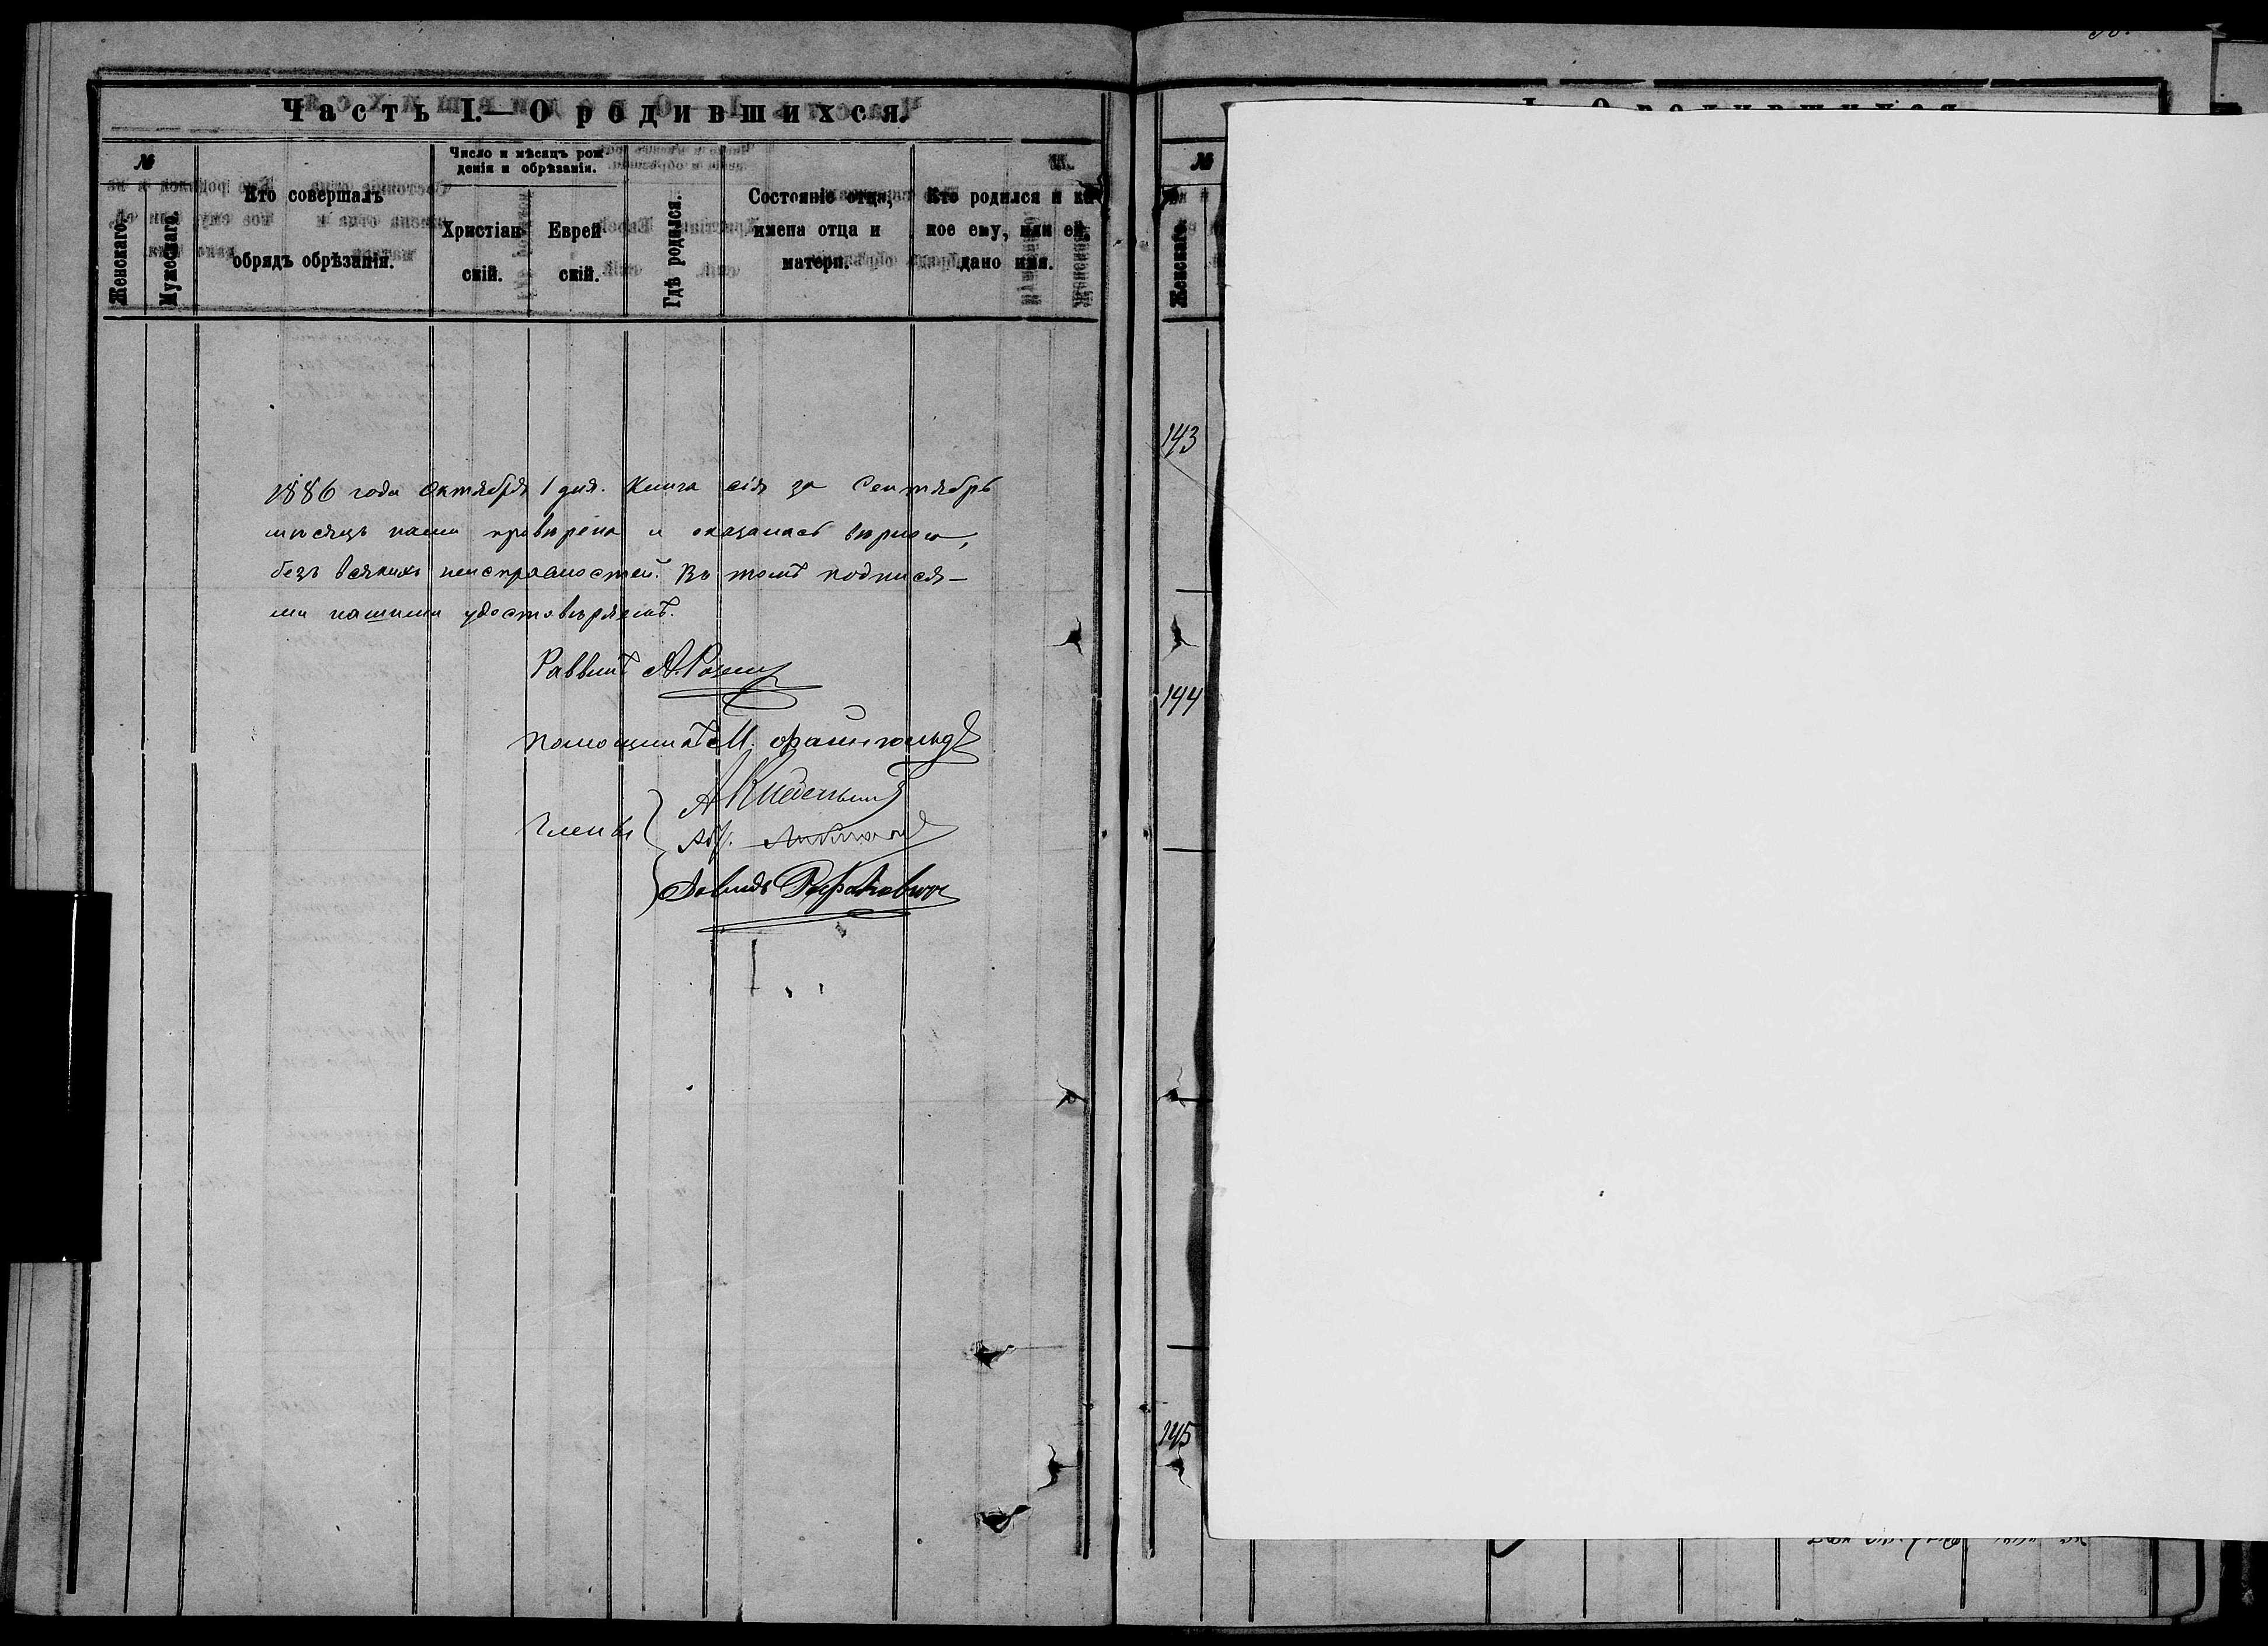 Часть I.— О родившихся.
№
Женскаго.
Мужескаго.
Кто совершалъ
обрядъ обрѣзанія.
Число и мѣсяцъ рож-
денія и обрѣзанія.
Христіан-
скій.
Еврей-
скій.
Гдѣ родился.
Состояніе отца,
имена отца и
матери.
Кто родился и ка-
кое ему, или ей,
дано имя.
1886 года Октября 1 дня. Книга сія за Сентябрь
мѣсяцъ нами провѣрена и оказалась вѣрною,
безъ всякихъ неисправностей. Въ томъ подпися-
ми нашими удостовѣряемъ.
Раввинъ А.
Помощникъ М. Файнгольд
Члены
А
Давидъ
№
Женскаго.
143
144
145